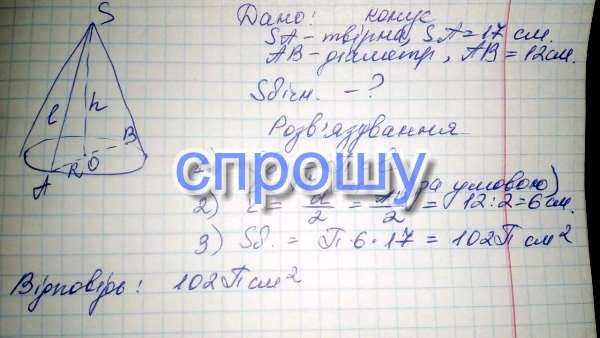 Дано: конус
SA - твірна, SA = 17 см.
AB - діаметр, AB = 12см.
Sбічн. - ?
Розв'язування
S
l
h
B
A
R
O
спрошу
умовою)
2) = d/2 = /2 = 12:2=6см.
3) Sб. = П·6·17 = 102П см²
Відповідь: 102П см²